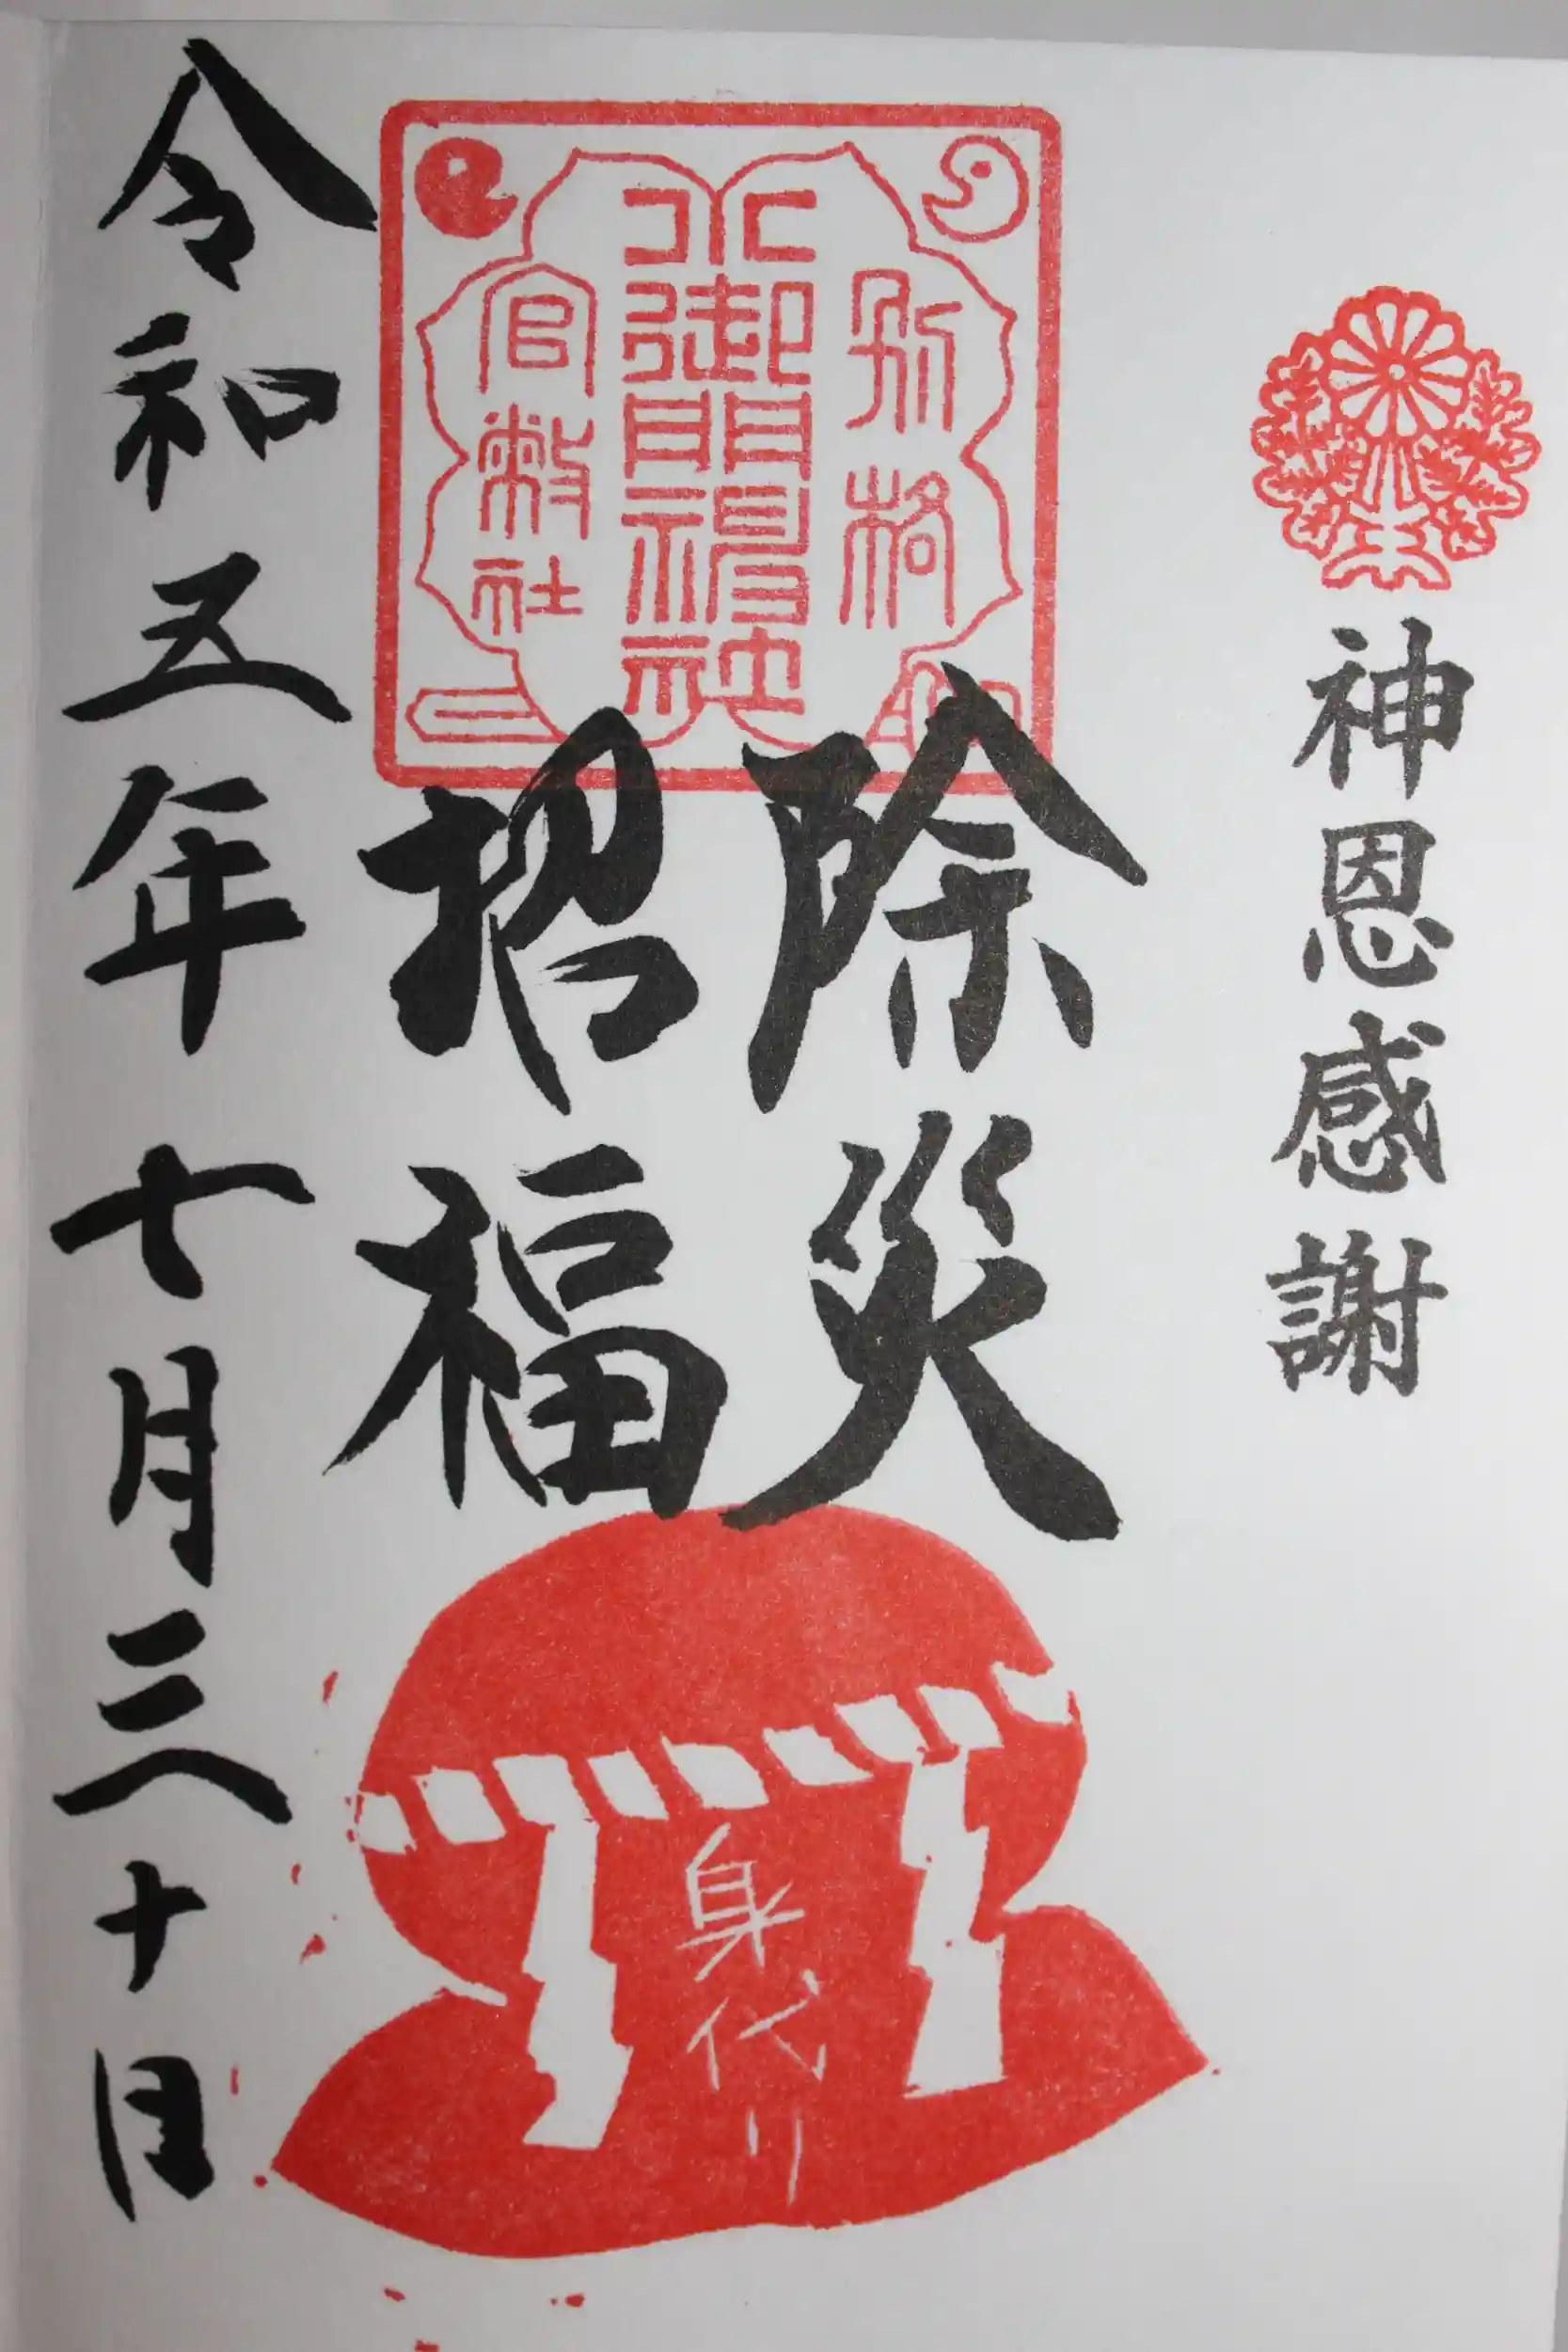 神恩感謝
除災
招福
別格
小御門神社
官幣社
身代り
令和五年七月三十日